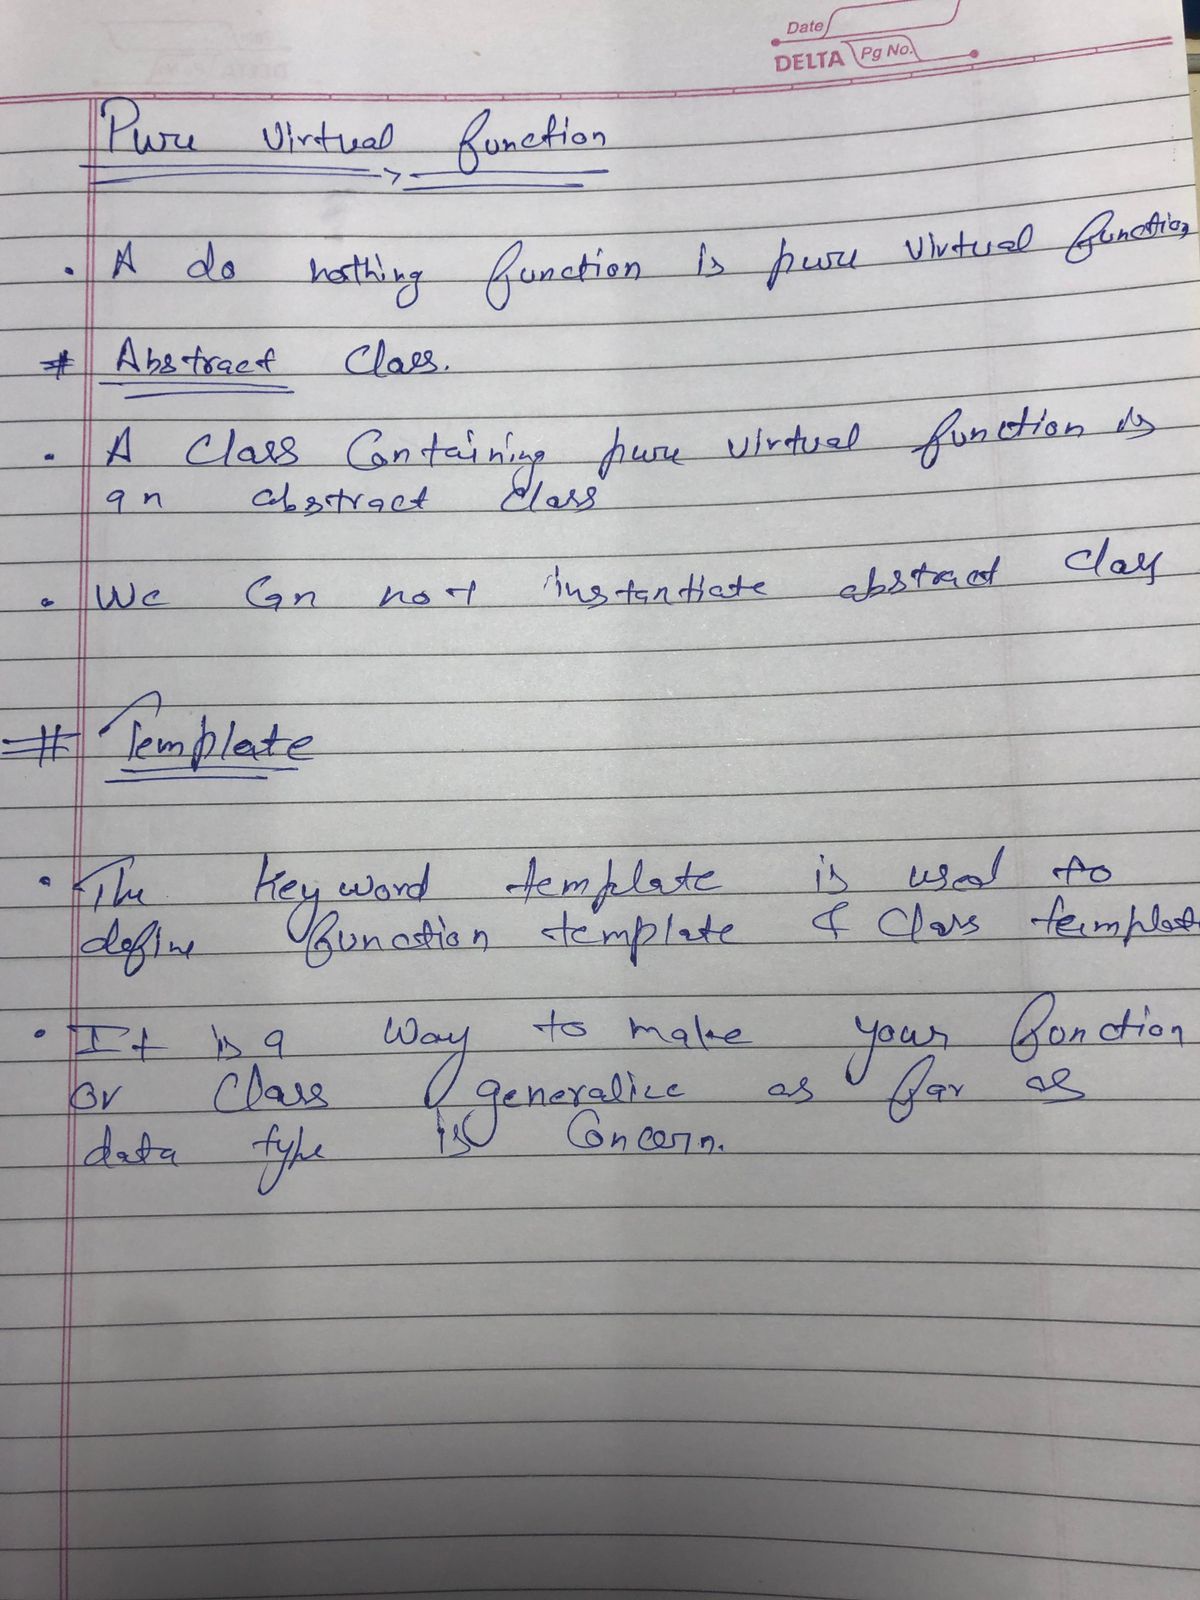 Date
DELTA Pg No.
Pure Virtual function
. A do nothing function is pure virtual function
# Abstract Class.
. A Class Containing pure virtual function is
an abstract class
. We Can not instantiate abstract class
# Template
. The keyword template is used to
define function template & Class template
. It is a way to make your function
or Class generalize as far as
data type is Concern.